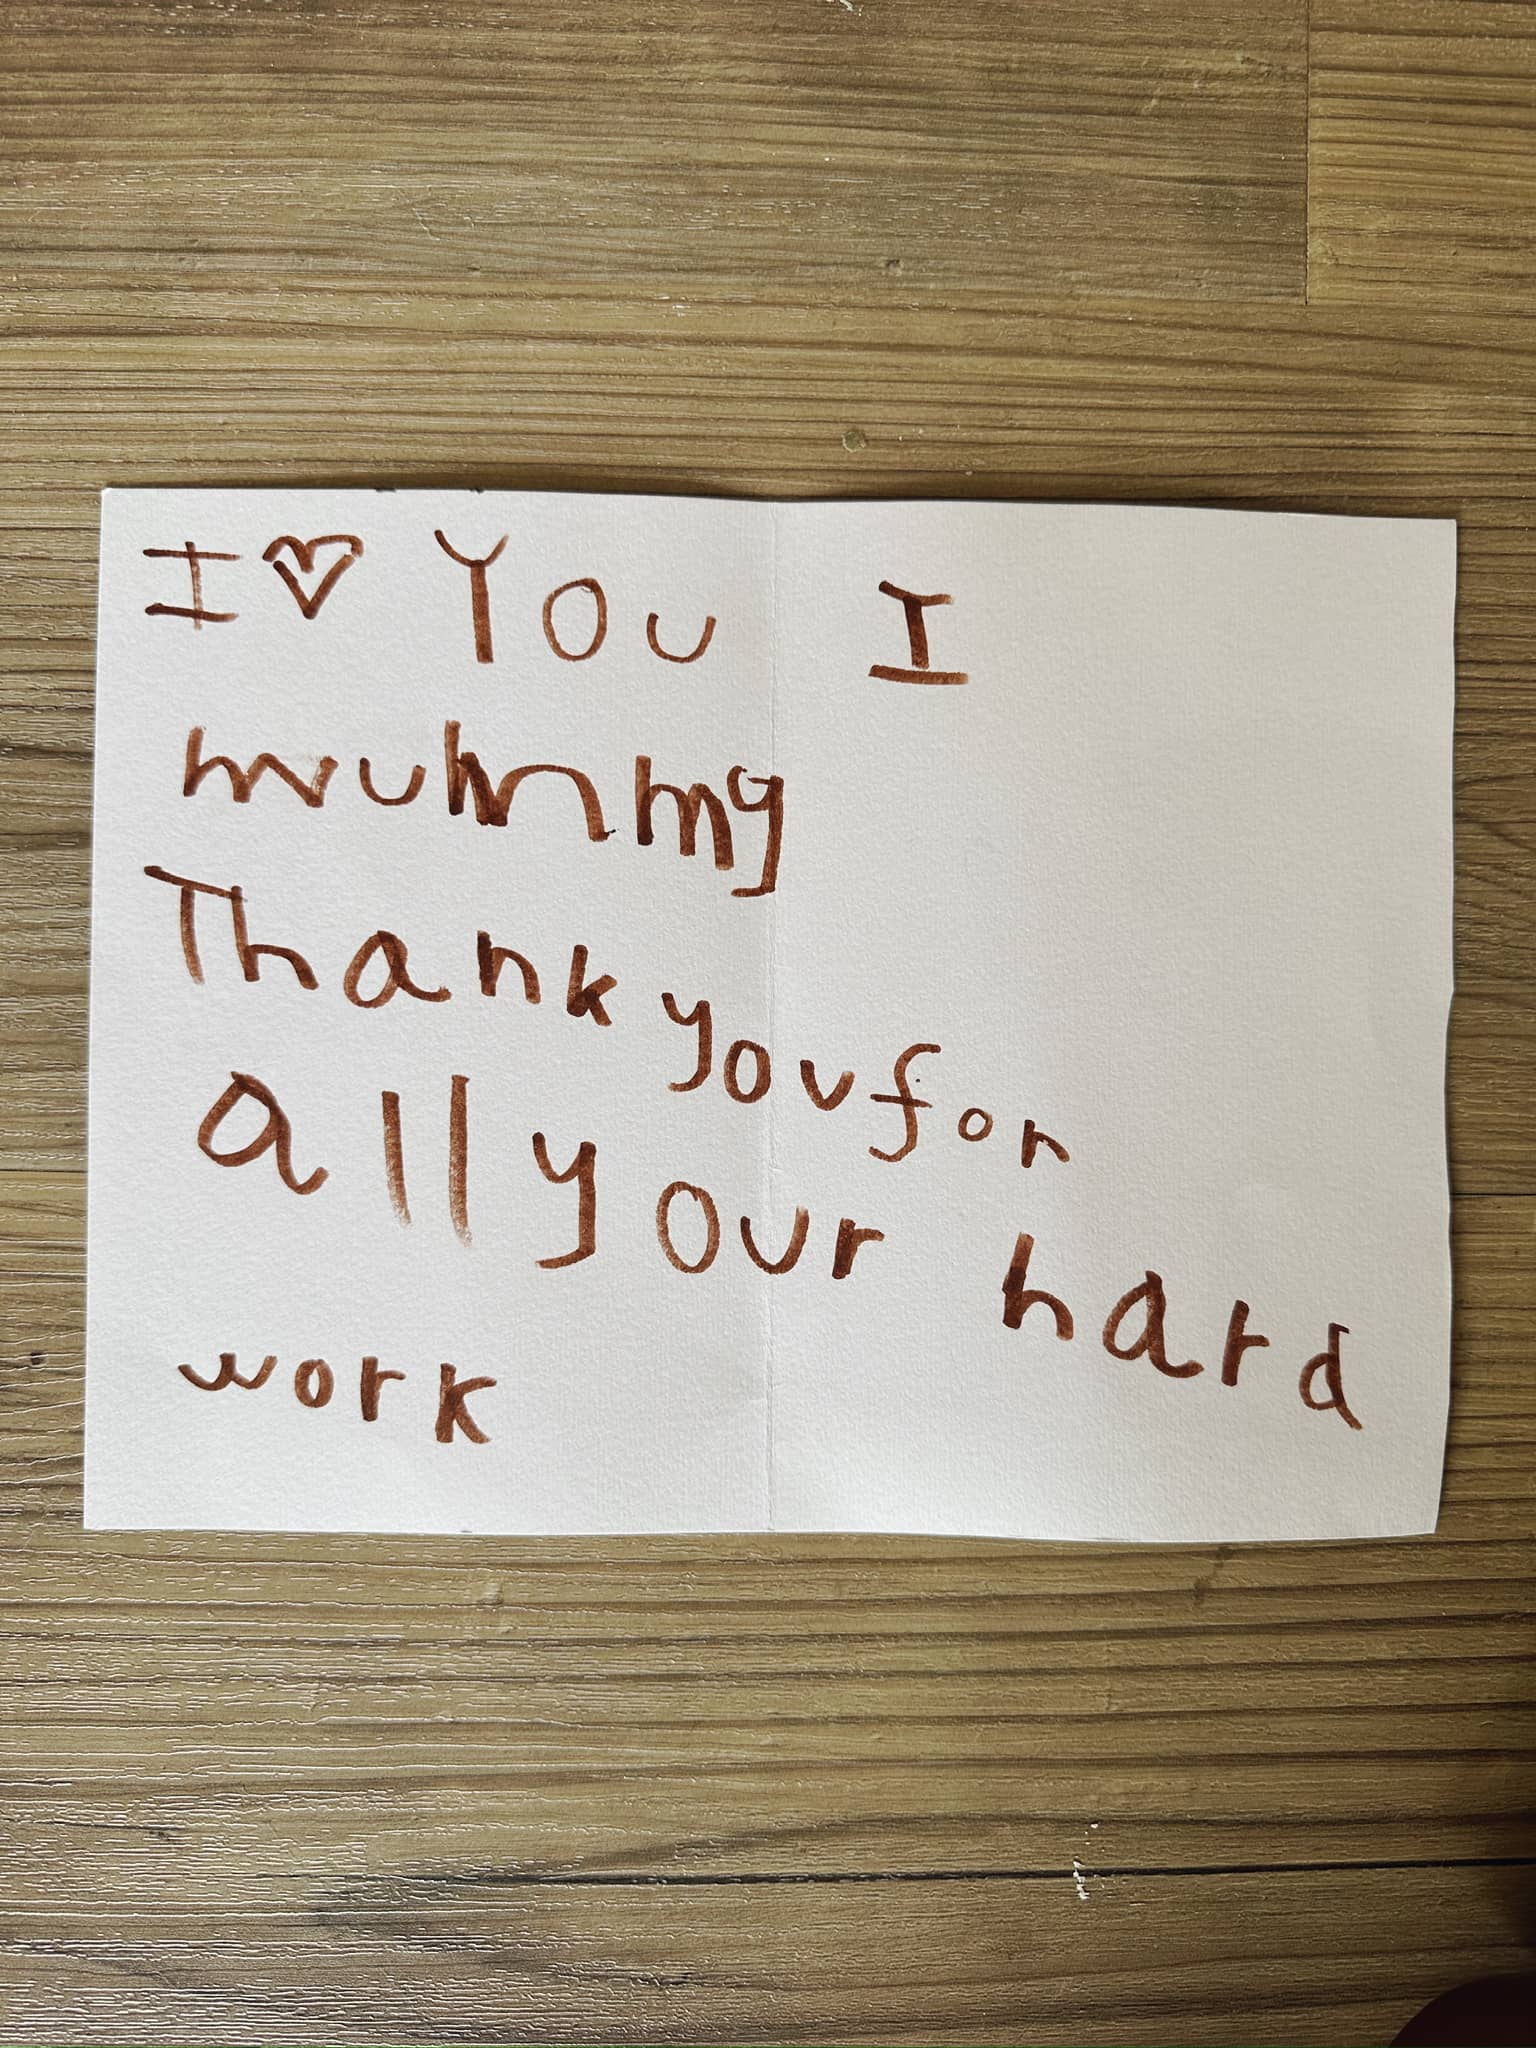 I ♡ You I
mummy
Thank you for
all your hard
work